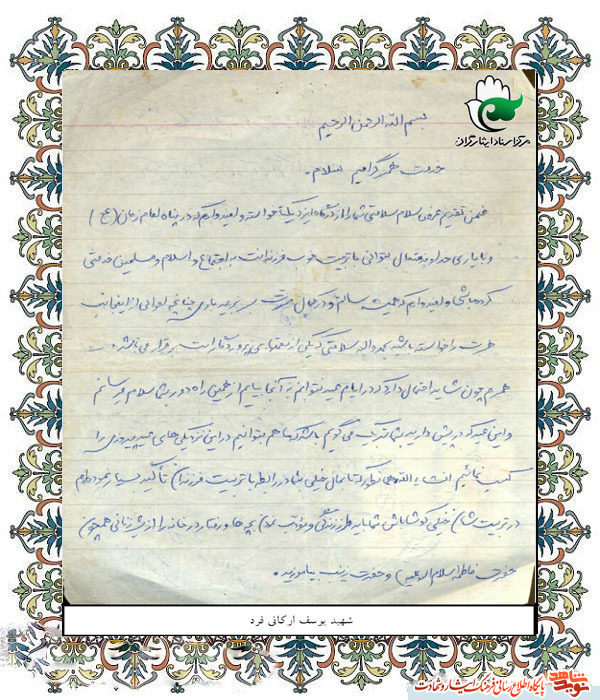 مرکز اسناد ایثارگران
بسم الله الرحمن الرحیم
خدمت همسر گرامیم سلام.
ضمن تقدیم عرض سلام سلامتی شما را از درگاه ایزد یکتا خواسته و امیدوارم که در پناه امام زمان (عج)
و با یاری خداوند متعال بتوانی با تربیت خوب فرزندانت به اجتماع و اسلام و مسلمین خدمتی
کرده باشی و امیدوارم که همیشه سالم و در کمال مسرت سر برید باری چنانچه احوالی از اینجانب
همسرت را خواسته باشید بحمدالله سلامتی که یکی از نعمتهای پروردگار است برقرار می باشد.
همسرم چون شاید احتمال دارد که در ایام عید نتوانم به آنجا بیایم از همین راه دور بشما سلام میرسانم
و این عید که در پیش دارید بشما تبریک می گویم باشد که ما هم بتوانیم در این نزدیکی های عید پیروزی را
کسب نمائیم انشاءالله همانطور که تا بحال خیلی بشما در رابطه با تربیت فرزندان تأکید بسیار نموده ام
در تربیت شان خیلی کوشا باش شما باید طرز زندگی و مؤدب بودن بچه ها و رفتار در خانه را از شیر زنانی همچون
حضرت فاطمه (سلام الله علیها) و حضرت زینب بیاموزید.
شهید یوسف ارکانی فرد
نوید شاهد
پایگاه اطلاع رسانی فرهنگ ایثار و شهادت